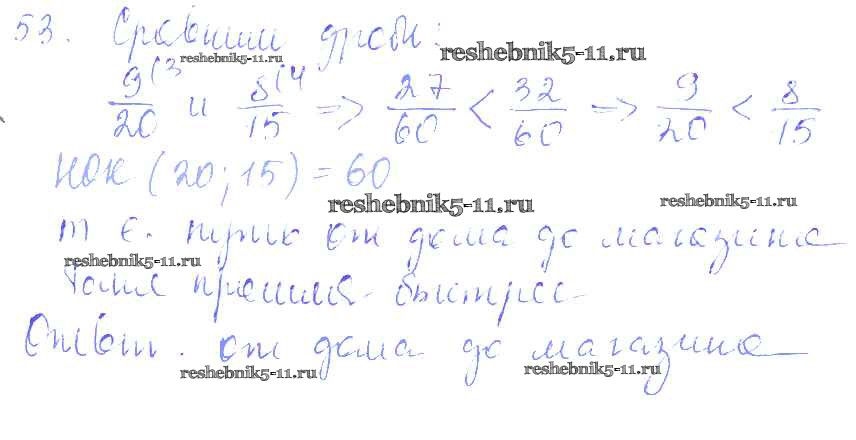 53. Сравним дроби:
reshebnik5-11.ru reshebnik5-11.ru
9(3/20 и 8(4/15 => 27/60 < 32/60 => 9/20 < 8/15
НОК (20; 15) = 60
reshebnik5-11.ru reshebnik5-11.ru
т е. путь от дома до магазина
reshebnik5-11.ru
прошла быстрее
Ответ. от дома до магазина
reshebnik5-11.ru reshebnik5-11.ru